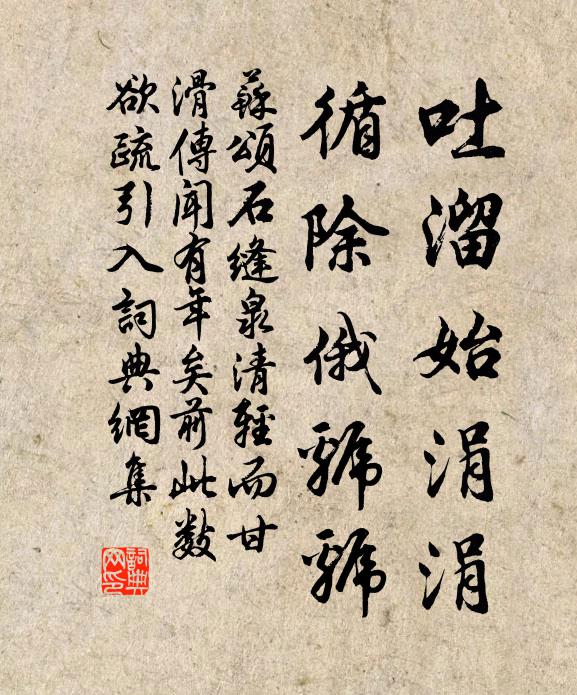 吐溜始涓涓
循除俄虢虢
蘇頌石縫泉清輕而甘
滑傳聞有年矣前此數
欲疏引入詞典網集
詞典網印